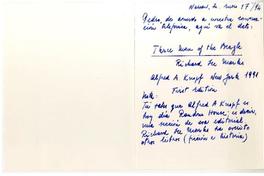 Pedro, de acuerdo a nuestra conver-
sación telefónica, aquí va el dato:
Three Men of the Beagle
Richard Lee Marks
Alfred A. Knopf New York 1991
First Edition
Nota:
Tú sabes que Alfred A Knopf es
hoy día Random House, es decir,
una sección de esa editorial
Richard Lee Marks ha escrito
otros libros (ficción e historia)